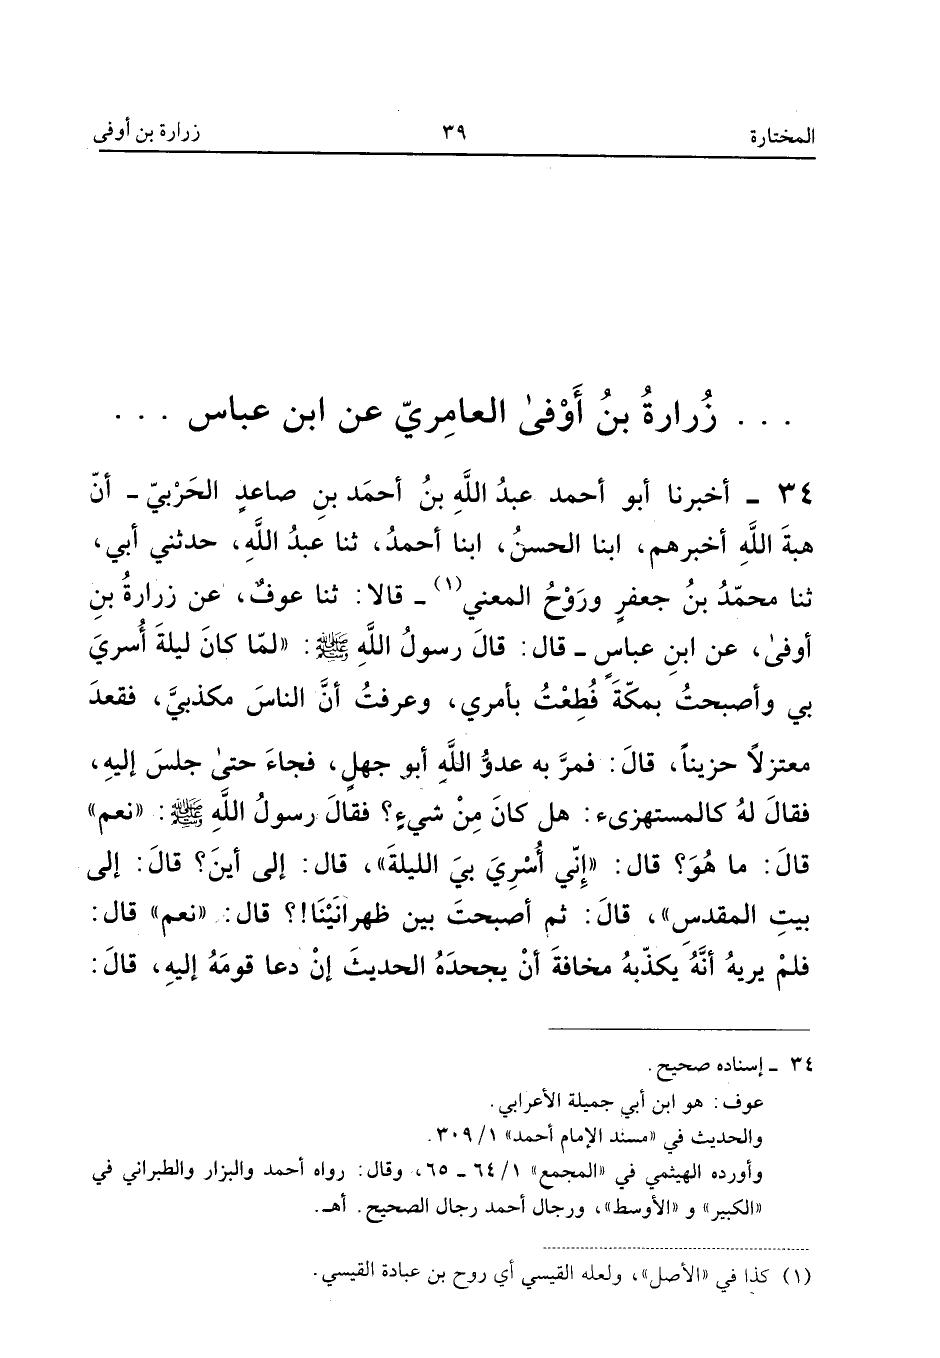 المختارة ٣٩ زرارة بن أوفى
. . . زُرارةُ بنُ أَوْفىٰ العامِريّ عن ابن عباس . . .
٣٤ ـ أخبرنا أبو أحمد عبدُ اللَّهِ بنُ أحمَد بنِ صاعدٍ الحَرْبيّ ـ أنّ
هبةَ اللَّهِ أخبرهم، ابنا الحسنُ، ابنا أحمدُ، ثنا عبدُ اللَّهِ، حدثني أبي،
ثنا محمّدُ بنُ جعفرٍ ورَوْحُ المعني(١) ـ قالا: ثنا عوفٌ، عن زرارةُ بنِ
أوفىٰ، عن ابنِ عباسٍ ـ قال: قالَ رسولُ اللَّهِ ﷺ: «لمّا كانَ ليلةَ أُسريَ
بي وأصبحتُ بمكّةَ فُطِعْتُ بأمري، وعرفتُ أنَّ الناسَ مكذبيَّ، فقعدَ
معتزلاً حزيناً، قالَ: فمرَّ به عدوُّ اللَّهِ أبو جهلٍ، فجاءَ حتىٰ جلسَ إليهِ،
فقالَ لهُ كالمستهزىء: هل كانَ مِنْ شيءٍ؟ فقالَ رسولُ اللَّهِ ﷺ: «نعم»
قالَ: ما هُوَ؟ قال: «إنّي أُسْرِيَ بيَ الليلةَ»، قال: إلى أينَ؟ قالَ: إلى
بيتِ المقدسِ»، قالَ: ثم أصبحتَ بين ظهرانَيْنَا!؟ قال: «نعم» قال:
فلمْ يريهُ أنَّهُ يكذّبهُ مخافةَ أنْ يجحدَهُ الحديثَ إنْ دعا قومَهُ إليهِ، قالَ:
٣٤ ـ إسناده صحيح.
عوف: هو ابن أبي جميلة الأعرابي.
والحديث في «مسند الإمام أحمد» ١/ ٣٠٩.
وأورده الهيثمي في «المجمع» ١/ ٦٤ ـ ٦٥، وقال: رواه أحمد والبزار والطبراني في
«الكبير» و «الأوسط»، ورجال أحمد رجال الصحيح. أهـ.
(١) كذا في «الأصل»، ولعله القيسي أي روح بن عبادة القيسي.